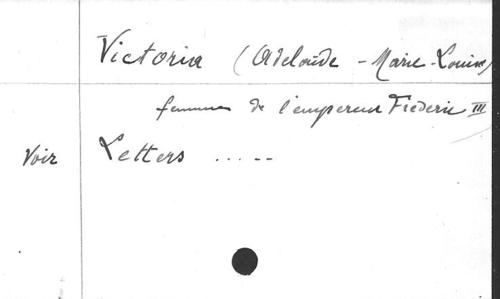 Victoria (Adelaïde - Marie - Louise)
femme de l'empereur Frédéric III
Voir Letters .....